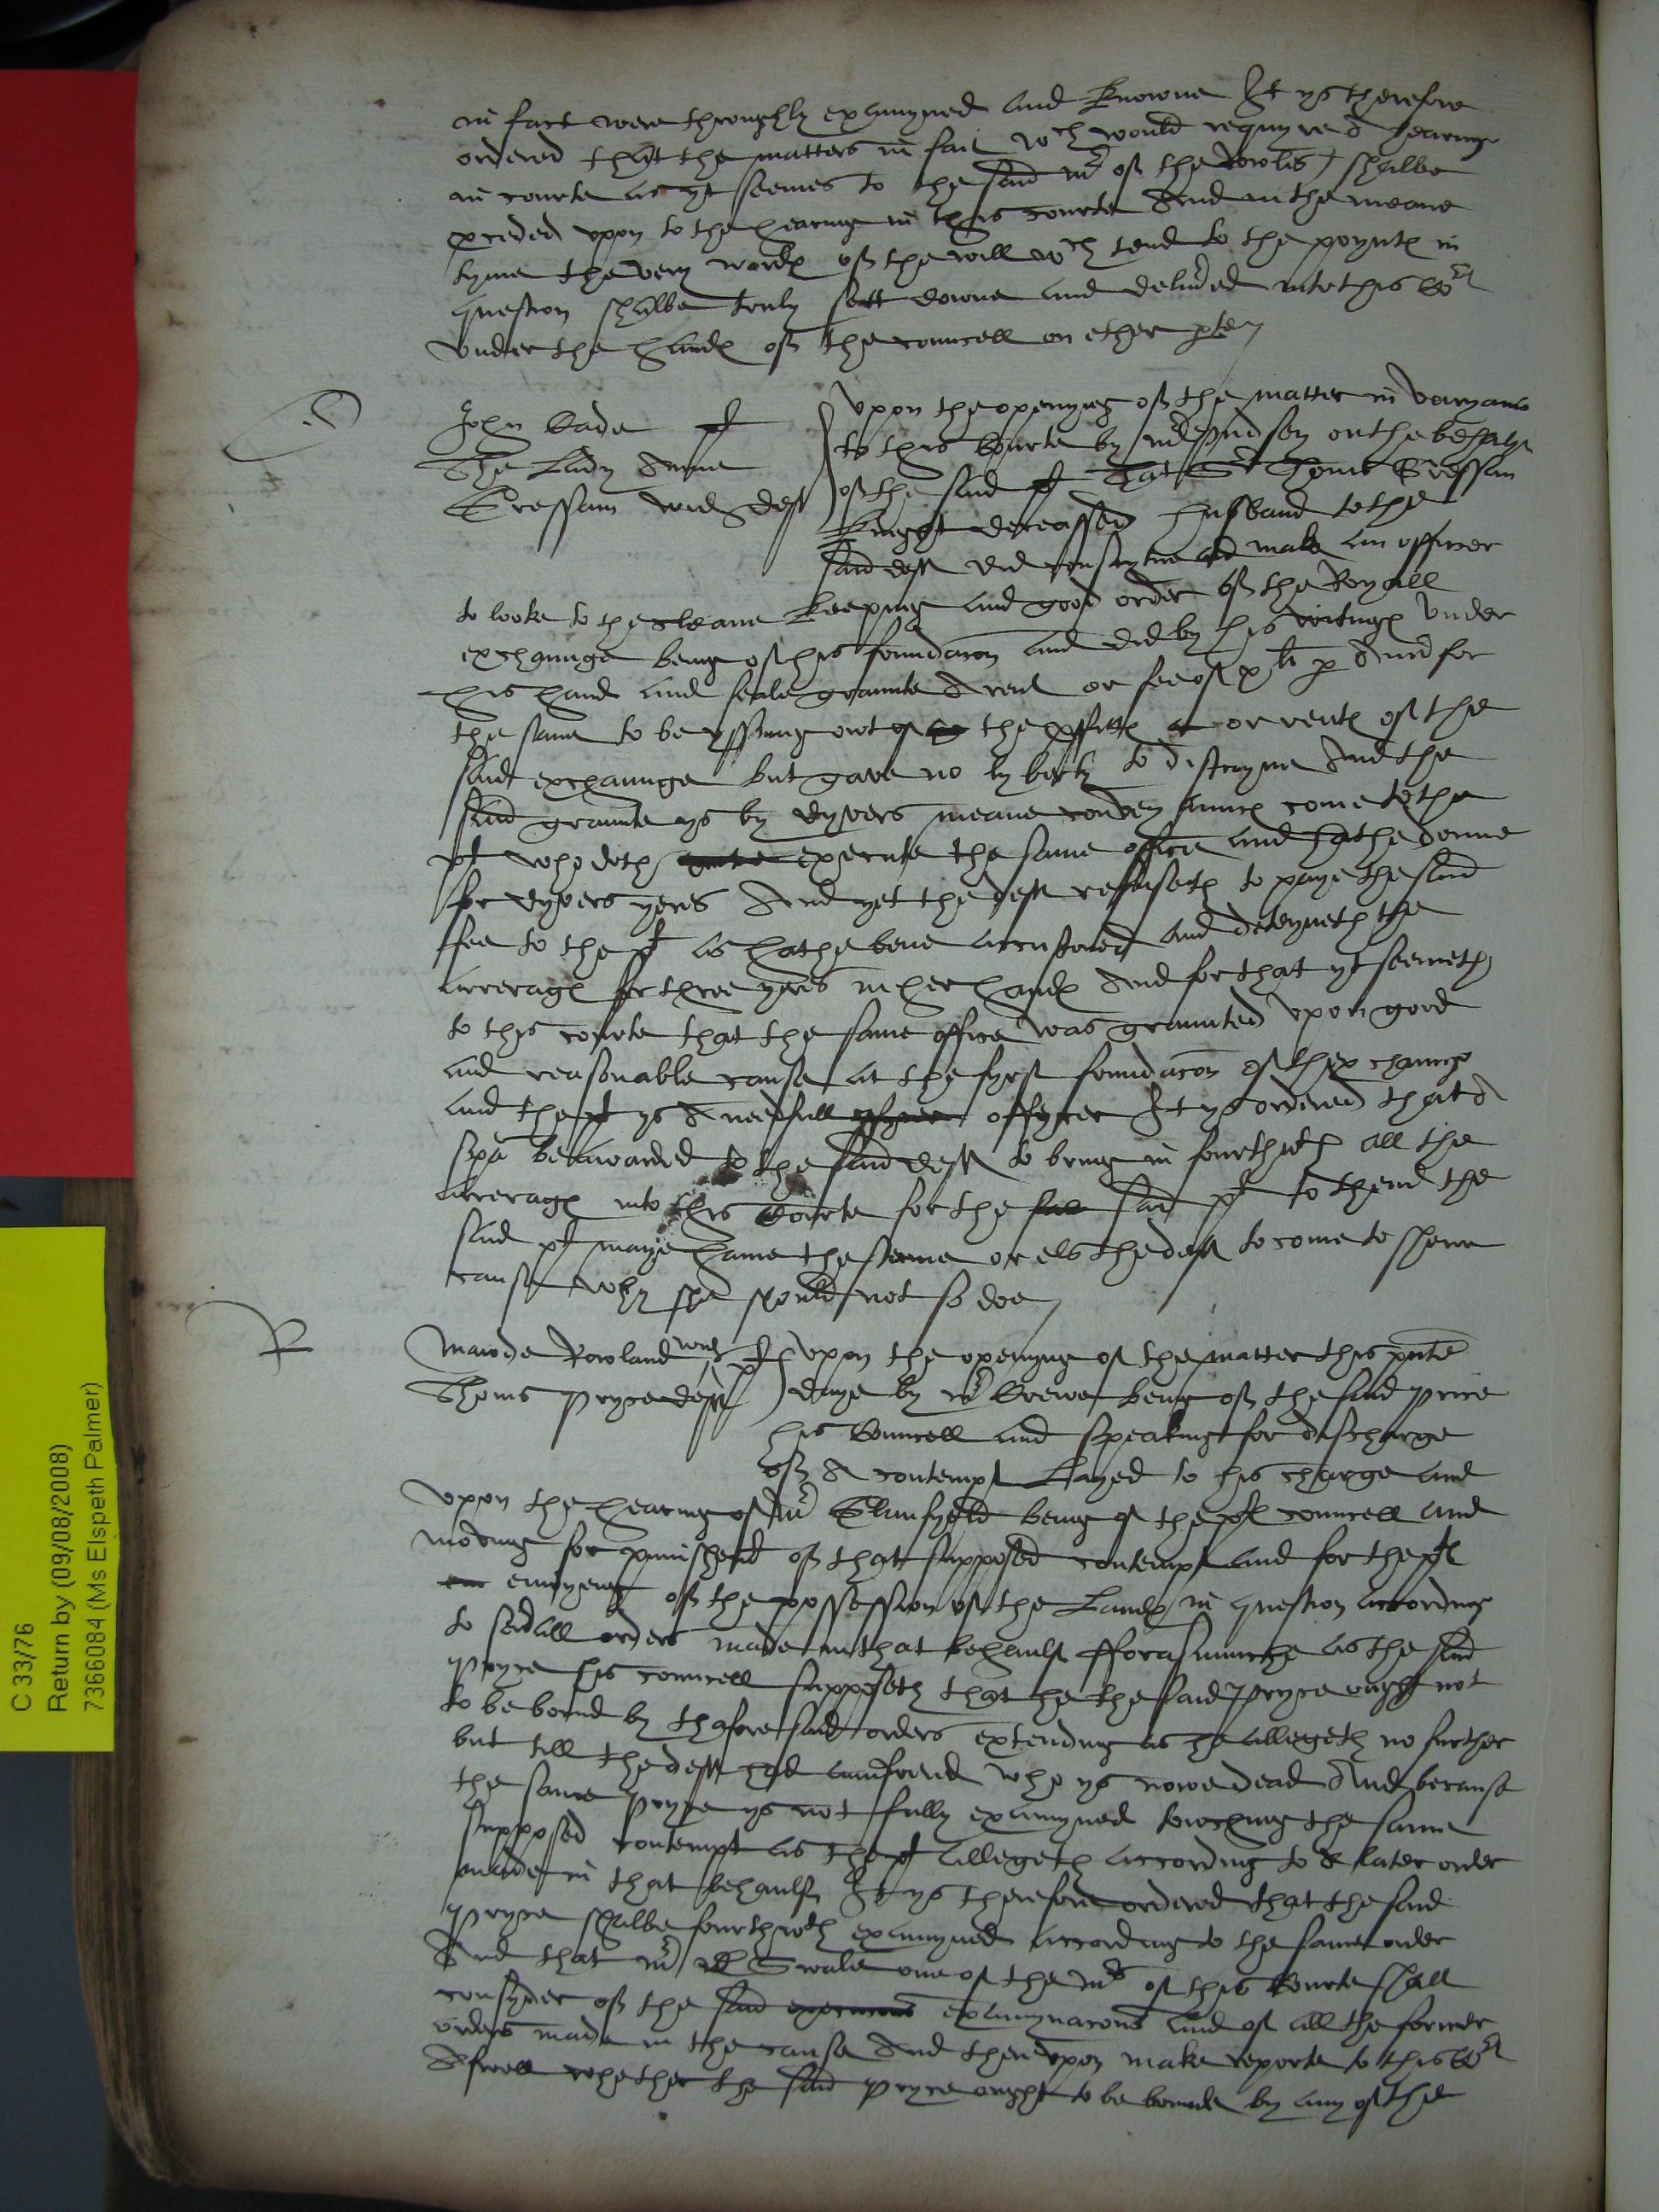 in fact were throughly examyned and knowne It ys therefore
ordered that the matters in fait wch would requyre a hearing
in courte as yt seemes to the said mr of the Rowles shalbe
proceded upon to the hearing in this courte And in the meane
tyme the very words of the will wch tend to the poynts in
question shalbe truly sett downe and delivred into this Cort
under the hands of the councell on ether pte
John Cade plt
The Lady Anne
Gressam wid deft
Upon the openyng of the matter in varyance
to this Courte by mr on the behalfe
of the said plt That Sr Thoms Gressam
knyght deceassed husband to the
said deft did constytute and make an officer
to looke to the cleane keeping and good order of the Royall
exchaunge being of his foundacon and did by his writings under
his hand and seale graunte A rent or fee of xli p Ann for
the same to be yssuing owt of the proffitts or rents of the
said exchaunge but gave no lyberty to distrayne And the
said graunte ys by dyvers meane conveyaunces come to the
plt who doth execute the same office and hathe donne
for dyvers yeres And yet the deft refuseth to paye the said
fee to the plt as hathe bene accustomed and deteyneth the
arrerags for three yeres in her hands And for that yt seemeth
to this courte that the same office was graunted upon good
and reasonable cause at the fyrst foundacon of thexchaunge
and the plt ys A needfull offycer It ys ordered that A
spa be awarded to the said deft to bring in fourthwth all the
arrerags into this Courte for the said plt to thend the
said plt maye have the same or els the deft to come to shew
cause why she should not so doe
Mawde Rowland wid plt
Thoms Pryce deft
Upon the openyng of the matter this pnte
daye by mr Brewer being of the said Price
his Councell and speaking for discharge
of A contempt Layed to his charge and
upon the hearing of mr Glanfyeld being of the plts councell and
moving for punishemt of that supposed contempt and for the plts
enioyeng of the possession of the Lands in question according
to sevrall orders made in that behaulf fforasmuche as the said
Pryce his councell supposeth that he the said Pryce ought not
to be bound by thaforesaid orders extending as he allegeth no further
but till the deft had answered who ys nowe dead And because
the same Pryce ys not fully examyned towching the same
supposed contempt as the plt allegeth according to A later order
made in that behaulf It ys therefore ordered that the said
Pryce shalbe fourthwth examyned according to the same order
And that mr D Swale one of the mrs of this Courte shall
consyder of the said examynacons and of all the former
orders made in the cause And thereupon make reporte to this Cort
Aswell whether the said Pryce ought to be bounde by any of the
C 33/76
Return by (09/08/2008)
7366084 (Ms Elspeth Palmer)